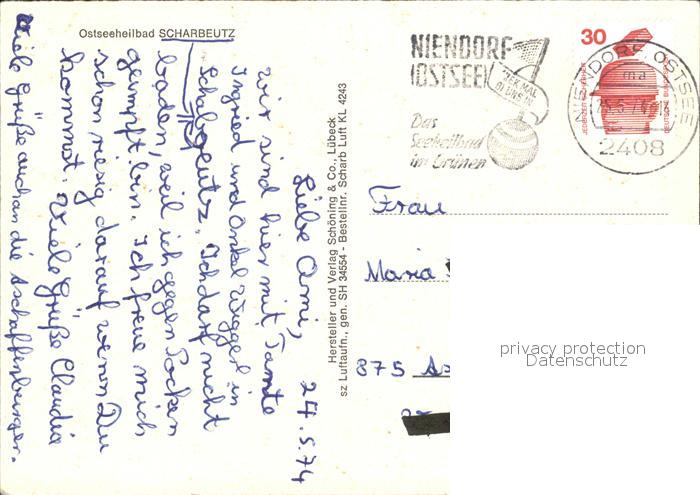 Ostseeheilbad SCHARBEUTZ
Liebe Omi, 24.5.74
wir sind hier mit Tante
Ingried und Onkel Wigger in
Scharbeutz. Ich darf nicht
baden, weil ich gegen Pocken
geimpft bin. Ich freue mich
schon riesig darauf wenn Du
kommst. Viele Grüße Claudia
Viele Grüße auch an die Aschaffenburger.
Hersteller und Verlag Schöning & Co., Lübeck
sz Luftaufn., gen. SH 34554 - Bestellnr. Scharb Luft KL 4243
NIENDORF
(OSTSEE)
Das
Seeheilbad
im Grünen
30
JEDERZEIT SICHERHEIT
DEUTSCHE BUNDESPOST
NIENDORF OSTSEE
ma
2408
Frau
Maria
875 As
privacy protection
Datenschutz